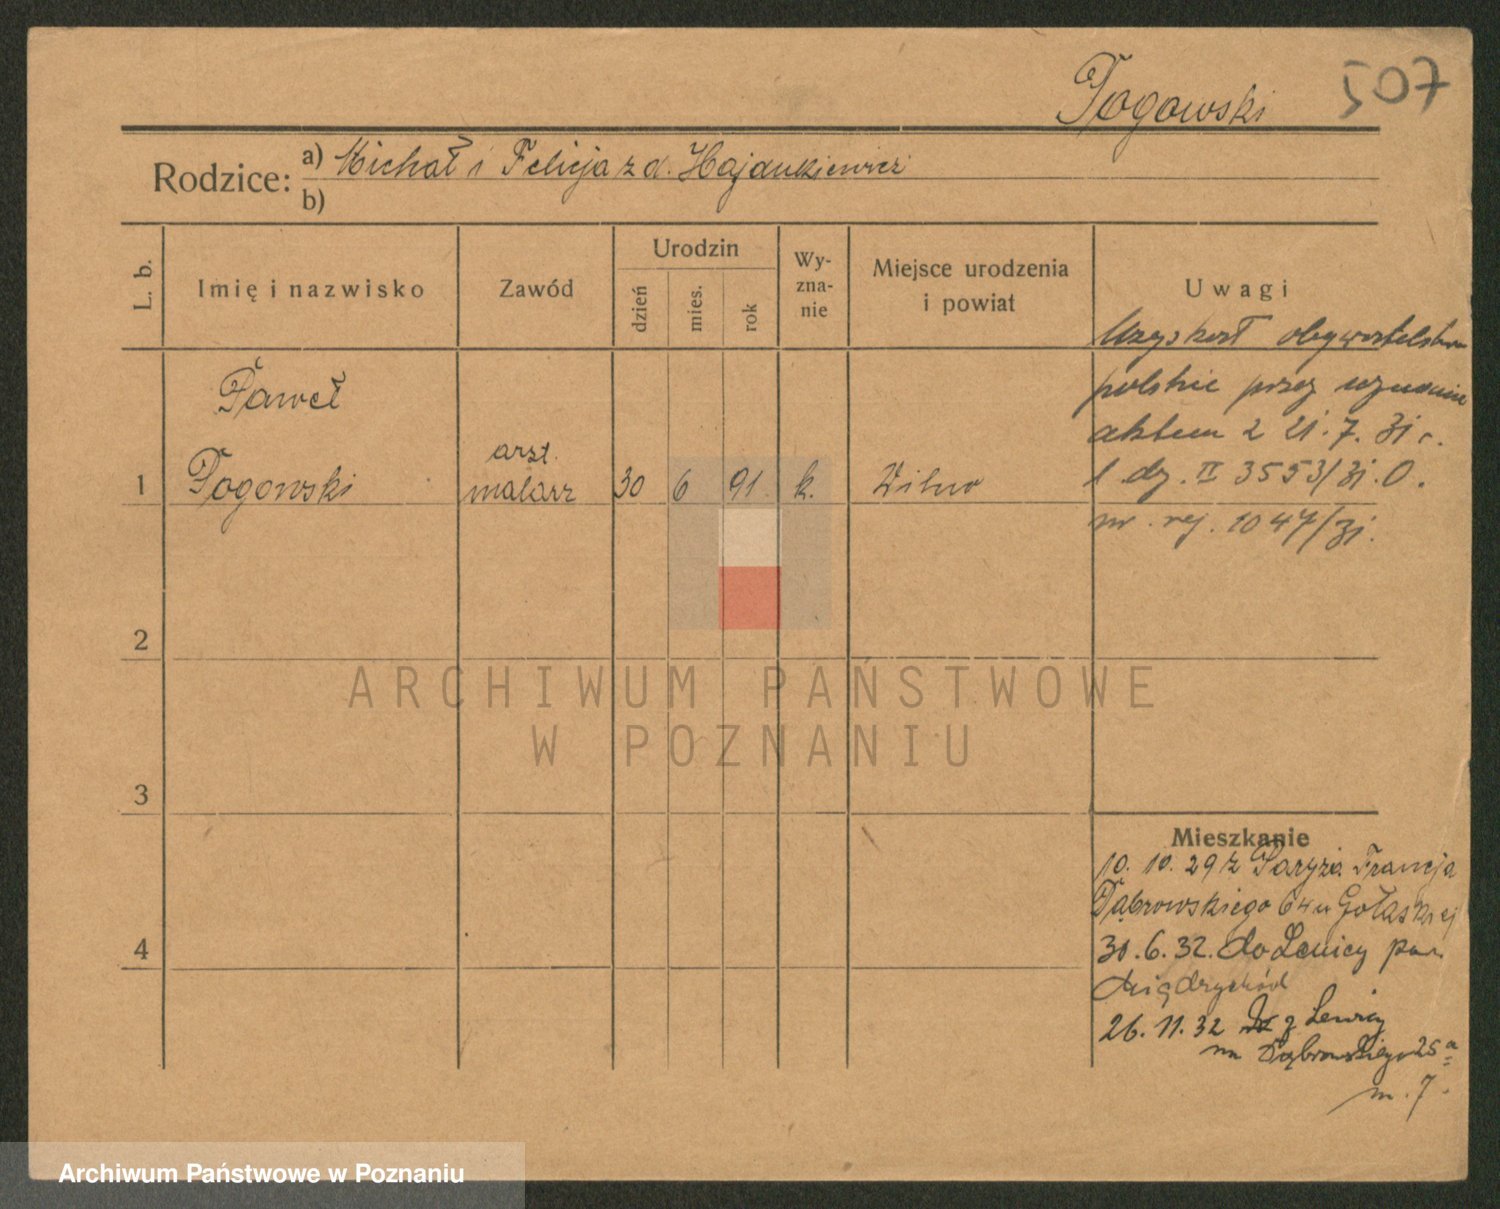 Pogowski
507
Rodzice:
a) Michał i Felicja z d. Hajdukiewicz
b)
L. b.
Imię i nazwisko
Zawód
Urodzin
dzień
mies.
rok
Wy-
zna-
nie
Miejsce urodzenia
i powiat
Uwagi
Uzyskał obywatelstwo
polskie przez uznanie
aktem z 21.7.31 r.
l. dz. II 3553/31.O.
nr. rej. 1047/31.
1
Paweł
Pogowski
arst.
malarz
30
6
91
k.
Wilno
2
3
4
Mieszkanie
10.10.29 z Paryża Francja
Dąbrowskiego 64 u
30.6.32. do Lewicy pow.
Międzychód
26.11.32 z Lewicy
na Dąbrowskiego 25a
m. 7.
ARCHIWUM PAŃSTWOWE
W POZNANIU
Archiwum Państwowe w Poznaniu